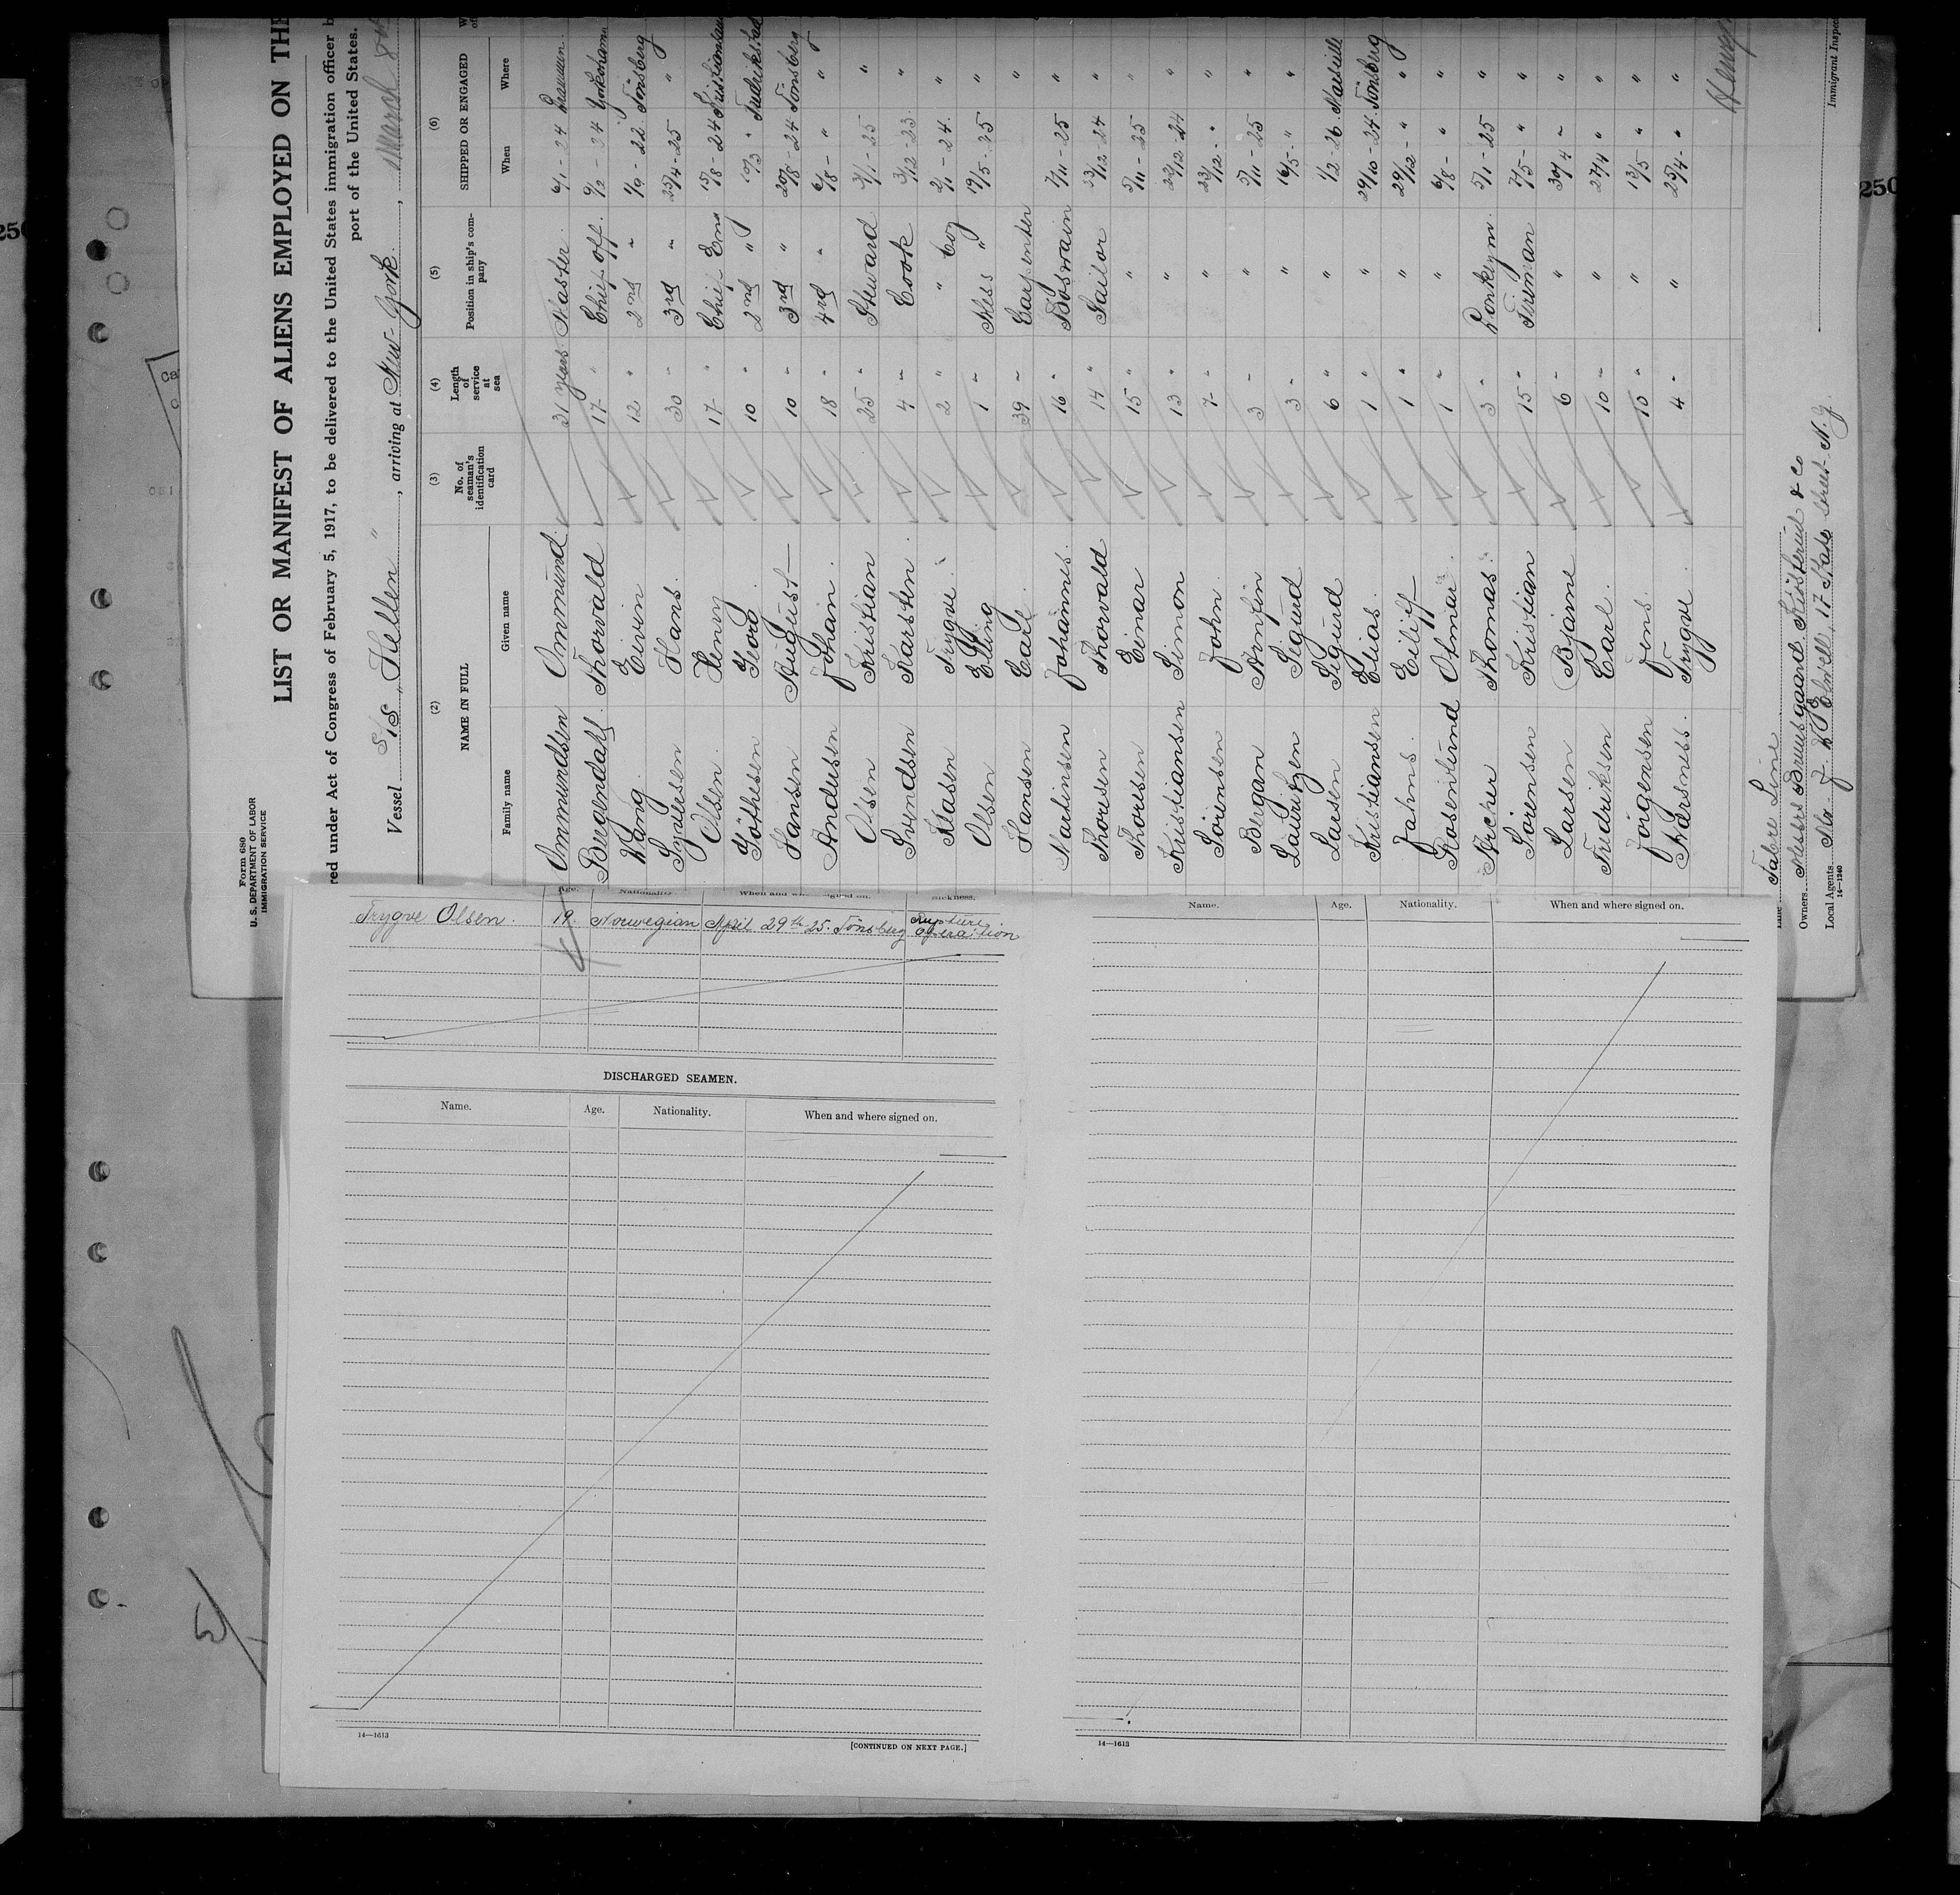 Form 680
U. S. DEPARTMENT OF LABOR
IMMIGRATION SERVICE
LIST OR MANIFEST OF ALIENS EMPLOYED ON THE
red under Act of Congress of February 5, 1917, to be delivered to the United States immigration officer b
port of the United States.
Vessel S/S "Hellen", arriving at New-York, March
(2) (3) (4) (5) (6)
NAME IN FULL No. of seaman's identification card Length of service at sea Position in ship's company SHIPPED OR ENGAGED
Family name Given name When Where
Ommundsen Ommund 31 years Master 6/1-24
Thorvald 17 " Chief off. 9/12-24 Yokohama
Lang Eivin 12 " 2nd " 1/9-22 Tönsberg
Hans. 30 " 3rd " 25/4-25 "
Olsen. Henny 17 " Chief Eng 15/8-24
Georg. 10 " 2nd " "
Hansen August 10 " 3rd " 20/8-24 Tönsberg
Andersen Johan. 18 " 4rd " 6/8-" "
Olsen Kristian 25 " Steward 3/1-25 "
Svendsen Karsten. 4 " Cook 3/12-23. "
Klasen Trygve. 2 " " Boy 2/1-24. "
Olsen Elling 1 " Mess " 19/5-25 "
Hansen Carl. 39 " Carpenter "
Martinsen Johannes. 16 " Boswain 7/11-25 "
Thoresen Thorvald 14 " Sailor 23/12-24 "
Thoresen Einar 15 " " 5/11-25 "
Kristiansen Simon 13 " " 22/12-24 "
Soirensen John. 7 " " 23/12-" "
Bergan Arnfin 3 " " 5/11-25 "
Lauritzen Sigurd 3 " " 16/5-" "
Larsen Sigurd 6 " " 1/2-26
Kristiansen Elias. 1 " " 29/10-24. Tönsberg
Jahns. Eiliff 1 " " 29/12-" "
Rosenlund Olmar. 1 " " 6/8-" "
Archer Thomas. 3 " Donkeym. 5/1-25 "
Soirensen Kristian 15 " Fireman 7/5-" "
Larsen Bjarne 6 " " 30/4 " "
Fredriksen Carl. 10 " " 27/4 " "
Jorgensen Jens. 10 " " 13/5 " "
Trygve. 4 " " 25/4-" "
Henry
Line Fabre Line
Owners Messrs Bruusgaard Kiösterud & Co
Local Agents. Elwell, 17 State Street N.Y.
14—1240
Immigrant Inspec
250
Age. Nationality When and where signed on. Sickness.
Trygve Olsen. 19. Norwegian April 29th-25. Tönsberg Rupture operation
DISCHARGED SEAMEN.
Name. Age. Nationality. When and where signed on.
14—1613
[CONTINUED ON NEXT PAGE.]
Name. Age. Nationality. When and where signed on.
14—1613